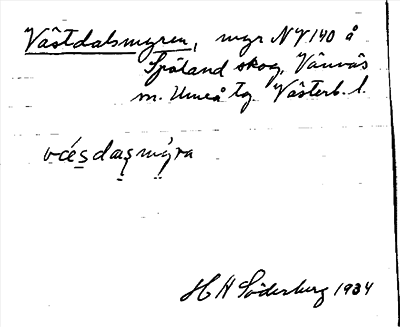 Västdalsmyren, myr NV 140 å
Spöland skog, Vännäs
sn. Umeå tg. Västerb. l.
vä́sdasmýra
H H Söderberg 1934